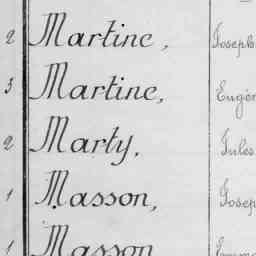 2 Martine, Joseph
3 Martine, Eugèn
2 Marty, Jules
1 Masson, Josep
1 Masson